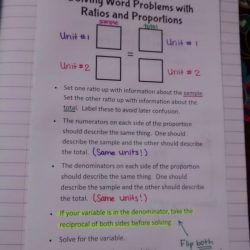 Solving Word Problems with
Ratios and Proportions
sample total
Unit #1 Unit #1
=
Unit #2 Unit #2
• Set one ratio up with information about the sample.
Set the other ratio up with information about the
total. Label these to avoid later confusion.
• The numerators on each side of the proportion
should describe the same thing. One should
describe the sample and the other should describe
the total. (Same units!)
• The denominators on each side of the proportion
should describe the same thing. One should
describe the sample and the other should describe
the total. (Same units!)
• If your variable is in the denominator, take the
reciprocal of both sides before solving.
• Solve for the variable.
Flip both